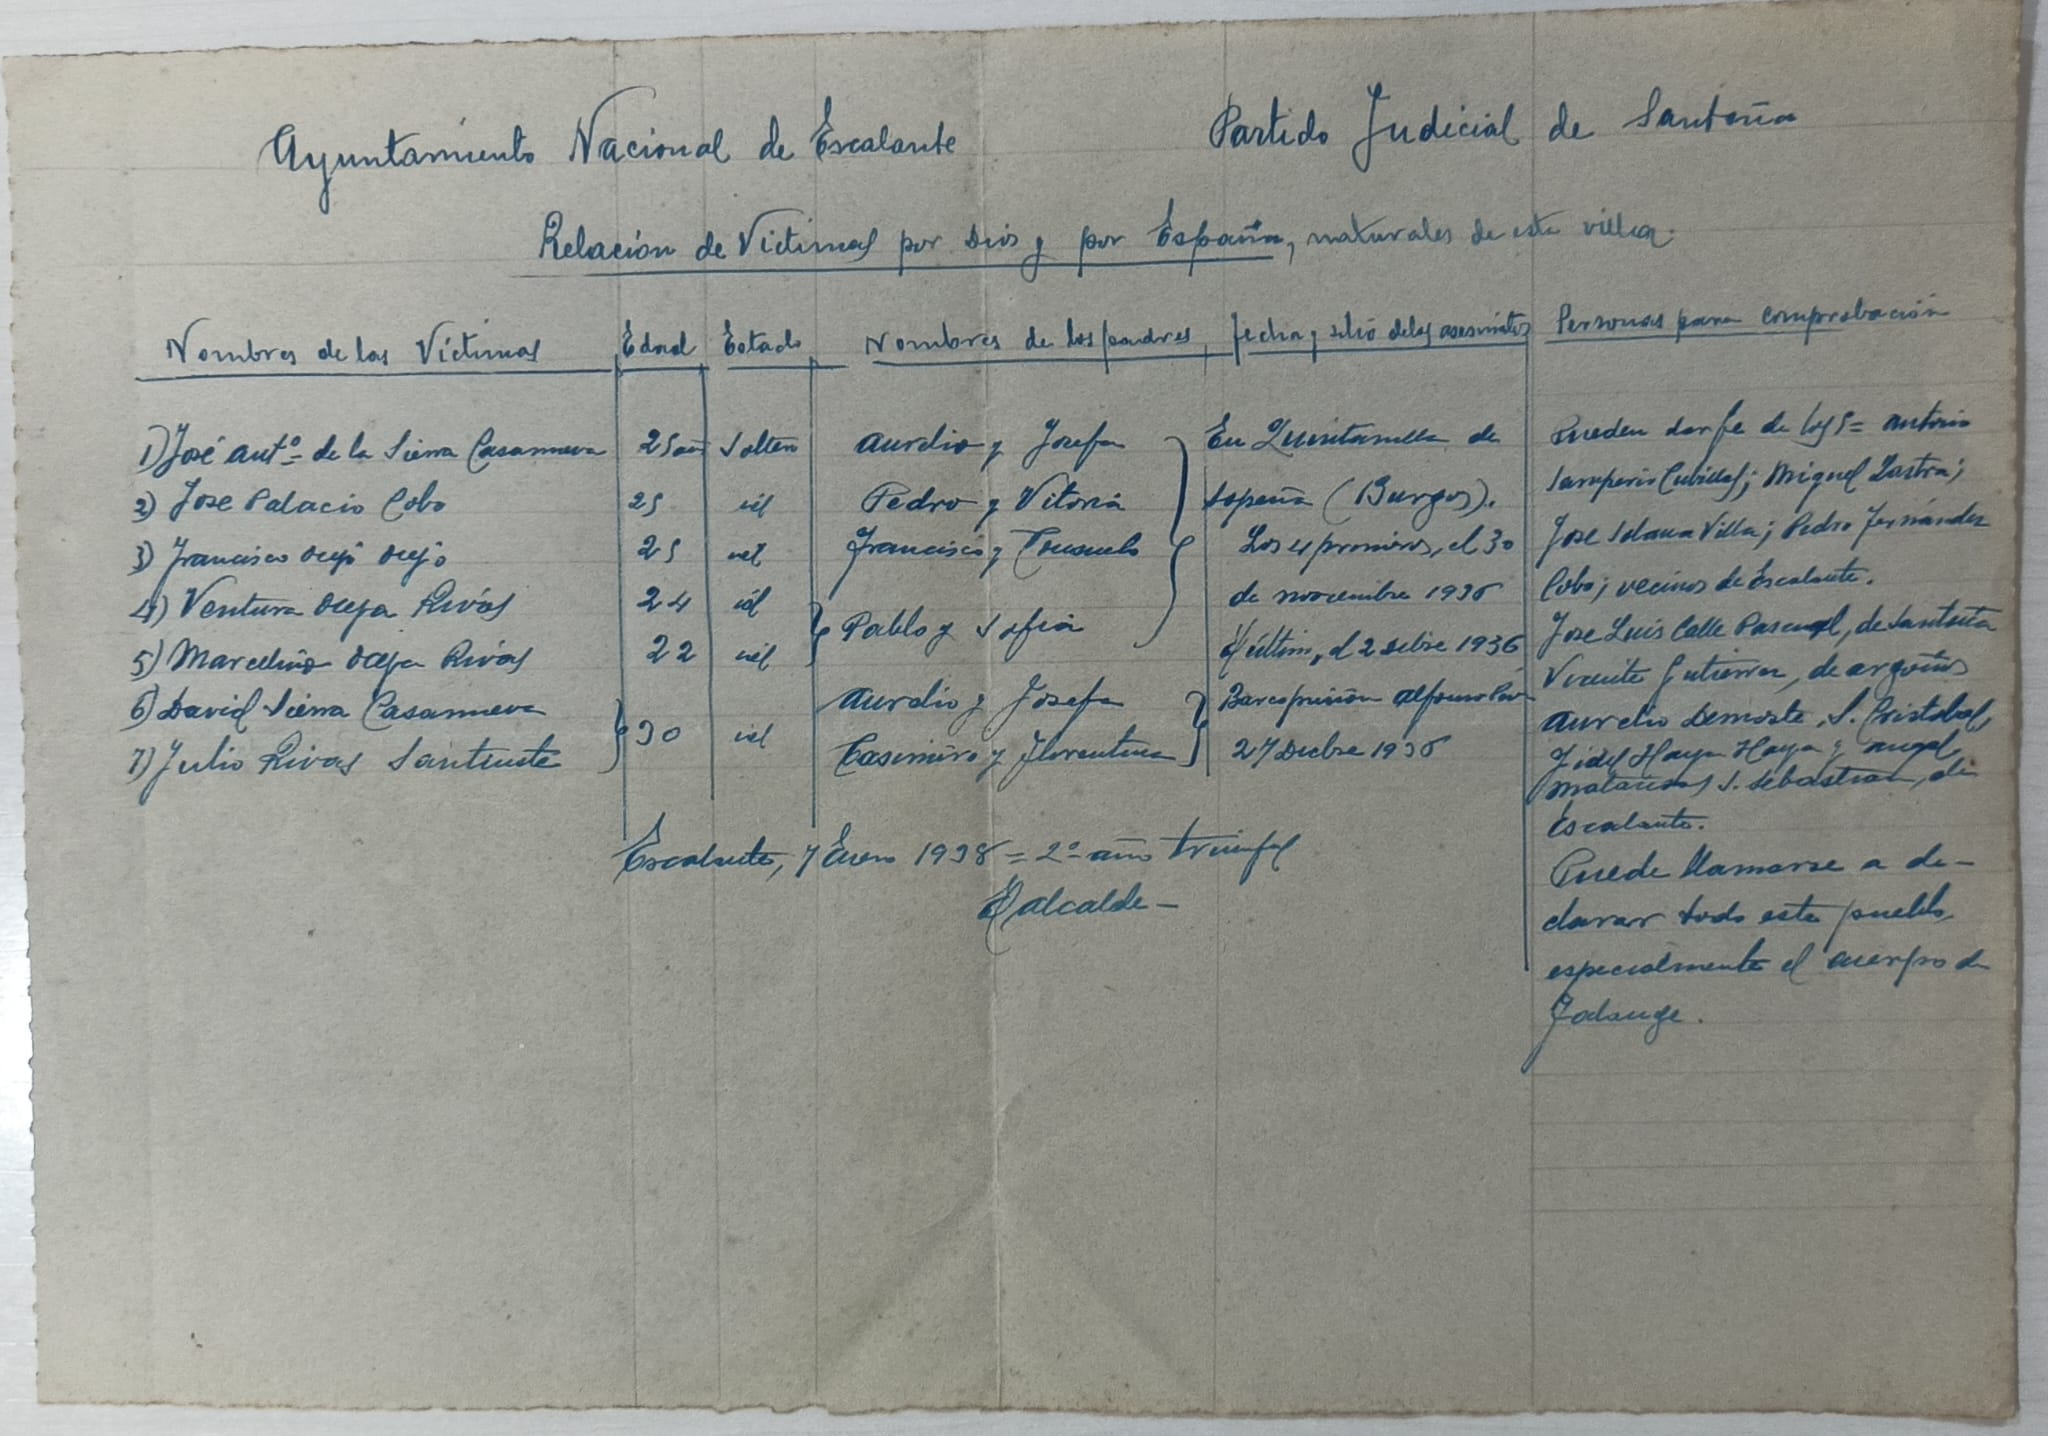 Ayuntamiento Nacional de Escalante Partido Judicial de Santoña
Relación de Victimas por Dios y por España, naturales de esta villa.
Nombres de las Víctimas Edad Estado Nombres de los padres fecha y sitio de los asesinatos Personas para comprobación
1) José Antº de la Sierra Casanueva 25 Soltero Aurelio y Josefa
2) Jose Palacio Cobo 25 id Pedro y Vitoria
3) Francisco Ocejo Ocejo 25 id Francisco y Consuelo
4) Ventura Oceja Rivas 24 id
5) Marcelino Oceja Rivas 22 id
Pablo y Sofia
6) David Sierra Casanueva Aurelio y Josefa
7) Julio Rivas Santiuste Casimiro y Florentina
30 id
En Quintanilla de
Sopeña (Burgos).
Los 4 primeros, el 30
de noviembre 1936
El último, el 2 1936
Barco prisión Alfonso
27 Dicbre 1936
Pueden dar fe de Antonio
Samperio Cubillas; Miguel Lastra;
Jose Solana Villa; Pedro Fernández
Cobo; vecinos de Escalante.
Jose Luis Calle Pascual, de Santoña
Vicente Gutierrez, de Argoños
Aurelio S. Cristobal,
Fidel Haya Haya y Angel
Matanzas S. Sebastian, de
Escalante.
Puede llamarse a de-
clarar todo este pueblo,
especialmente el cuerpo de
Falange.
Escalante, 7 Enero 1938 = 2º año triunfal
El alcalde -